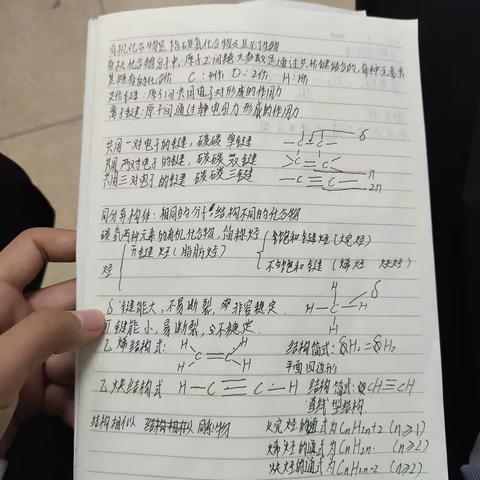 有机化合物是指碳氢化合物及其衍生物
有机化合物分子中，原子之间绝大多数是通过共价键结合的，每种元素
其特有的化合价 C：4价 O：2价 H：1价
共价键：原子间共用电子对形成的作用力
离子键：原子间通过静电引力形成的作用力
共用一对电子的键，碳碳单键 —C—C— δ
共用两对电子的键，碳碳双键 C=C π
共用三对电子的键 碳碳三键 —C≡C— 2π
同分异构体：相同的分子结构不同的化合物
碳氢两种元素的有机化合物，简称烃
烃 开链烃（脂肪烃） 饱和链烃（烷烃）
不饱和链（烯烃 炔烃）
δ键能大，不易断裂，非常稳定 H H—C—H δ H
π键能小，易断裂，不稳定
乙烯结构式： H H C=C H H 结构简式：CH₂=CH₂
平面四边形
乙炔结构式 H—C≡C—H 结构简式：CH≡CH
直线型结构
结构相似 同系物 烷烃的通式为CnH2n+2 (n≥1)
烯烃的通式为CnH2n (n≥2)
炔烃的通式为CnH2n-2 (n≥2)